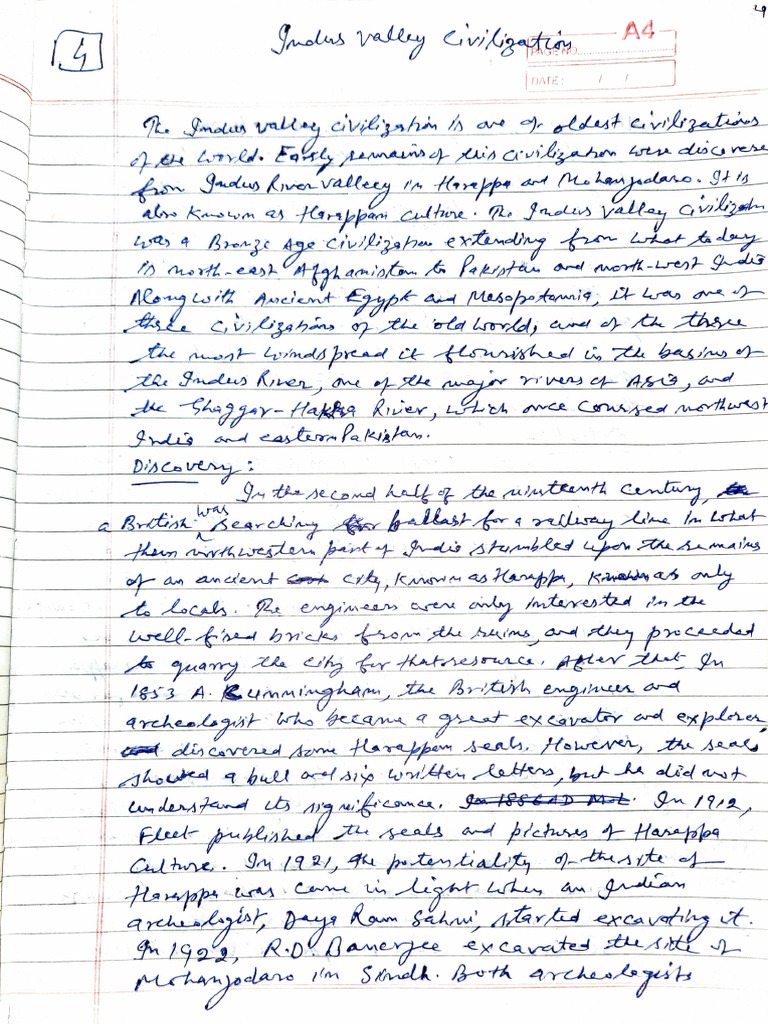 4
Indus valley Civilization
A4
PAGE NO.
DATE: / /
The Indus valley civilization is one of oldest civilizations
of the world. Early remains of this civilization were discovere
from Indus River valley in Harappa and Mohanjodaro. It is
also known as Harappan culture. The Indus valley Civilizatn
was a Bronze Age civilization extending from what today
is north-east Afghanistan to Pakistan and north-west India
Along with Ancient Egypt and Mesopotamia, it was one of
three civilizations of the old world, and of the three
the most windspread it flourished in the basins of
the Indus River, one of the major rivers of Asia, and
the Ghaggar-Hakra River, which once coursed northwest
India and eastern Pakistan.
Discovery:
In the second half of the nineteenth century,
a British was searching ballast for a railway line in what
then northwestern part of India stumbled upon the remains
of an ancient city, known as Harappa, known as only
to locals. The engineers were only interested in the
well-fired bricks from the ruins, and they proceeded
to quarry the city for that resource. After that In
1853 A. Cunningham, the British engineer and
archeologist who became a great excavator and explorer
discovered some Harappan seals. However, the seals
showed a bull and six written letters, but he did not
understand its significance. In 1886 AD In 1912,
Fleet published the seals and pictures of Harappa
Culture. In 1921, the potentiality of the site of
Harappa was came in light when an Indian
archeologist, Daya Ram Sahni, started excavating it.
In 1922, R.D. Banerjee excavated the site of
Mohanjodaro in Sindh. Both archeologists